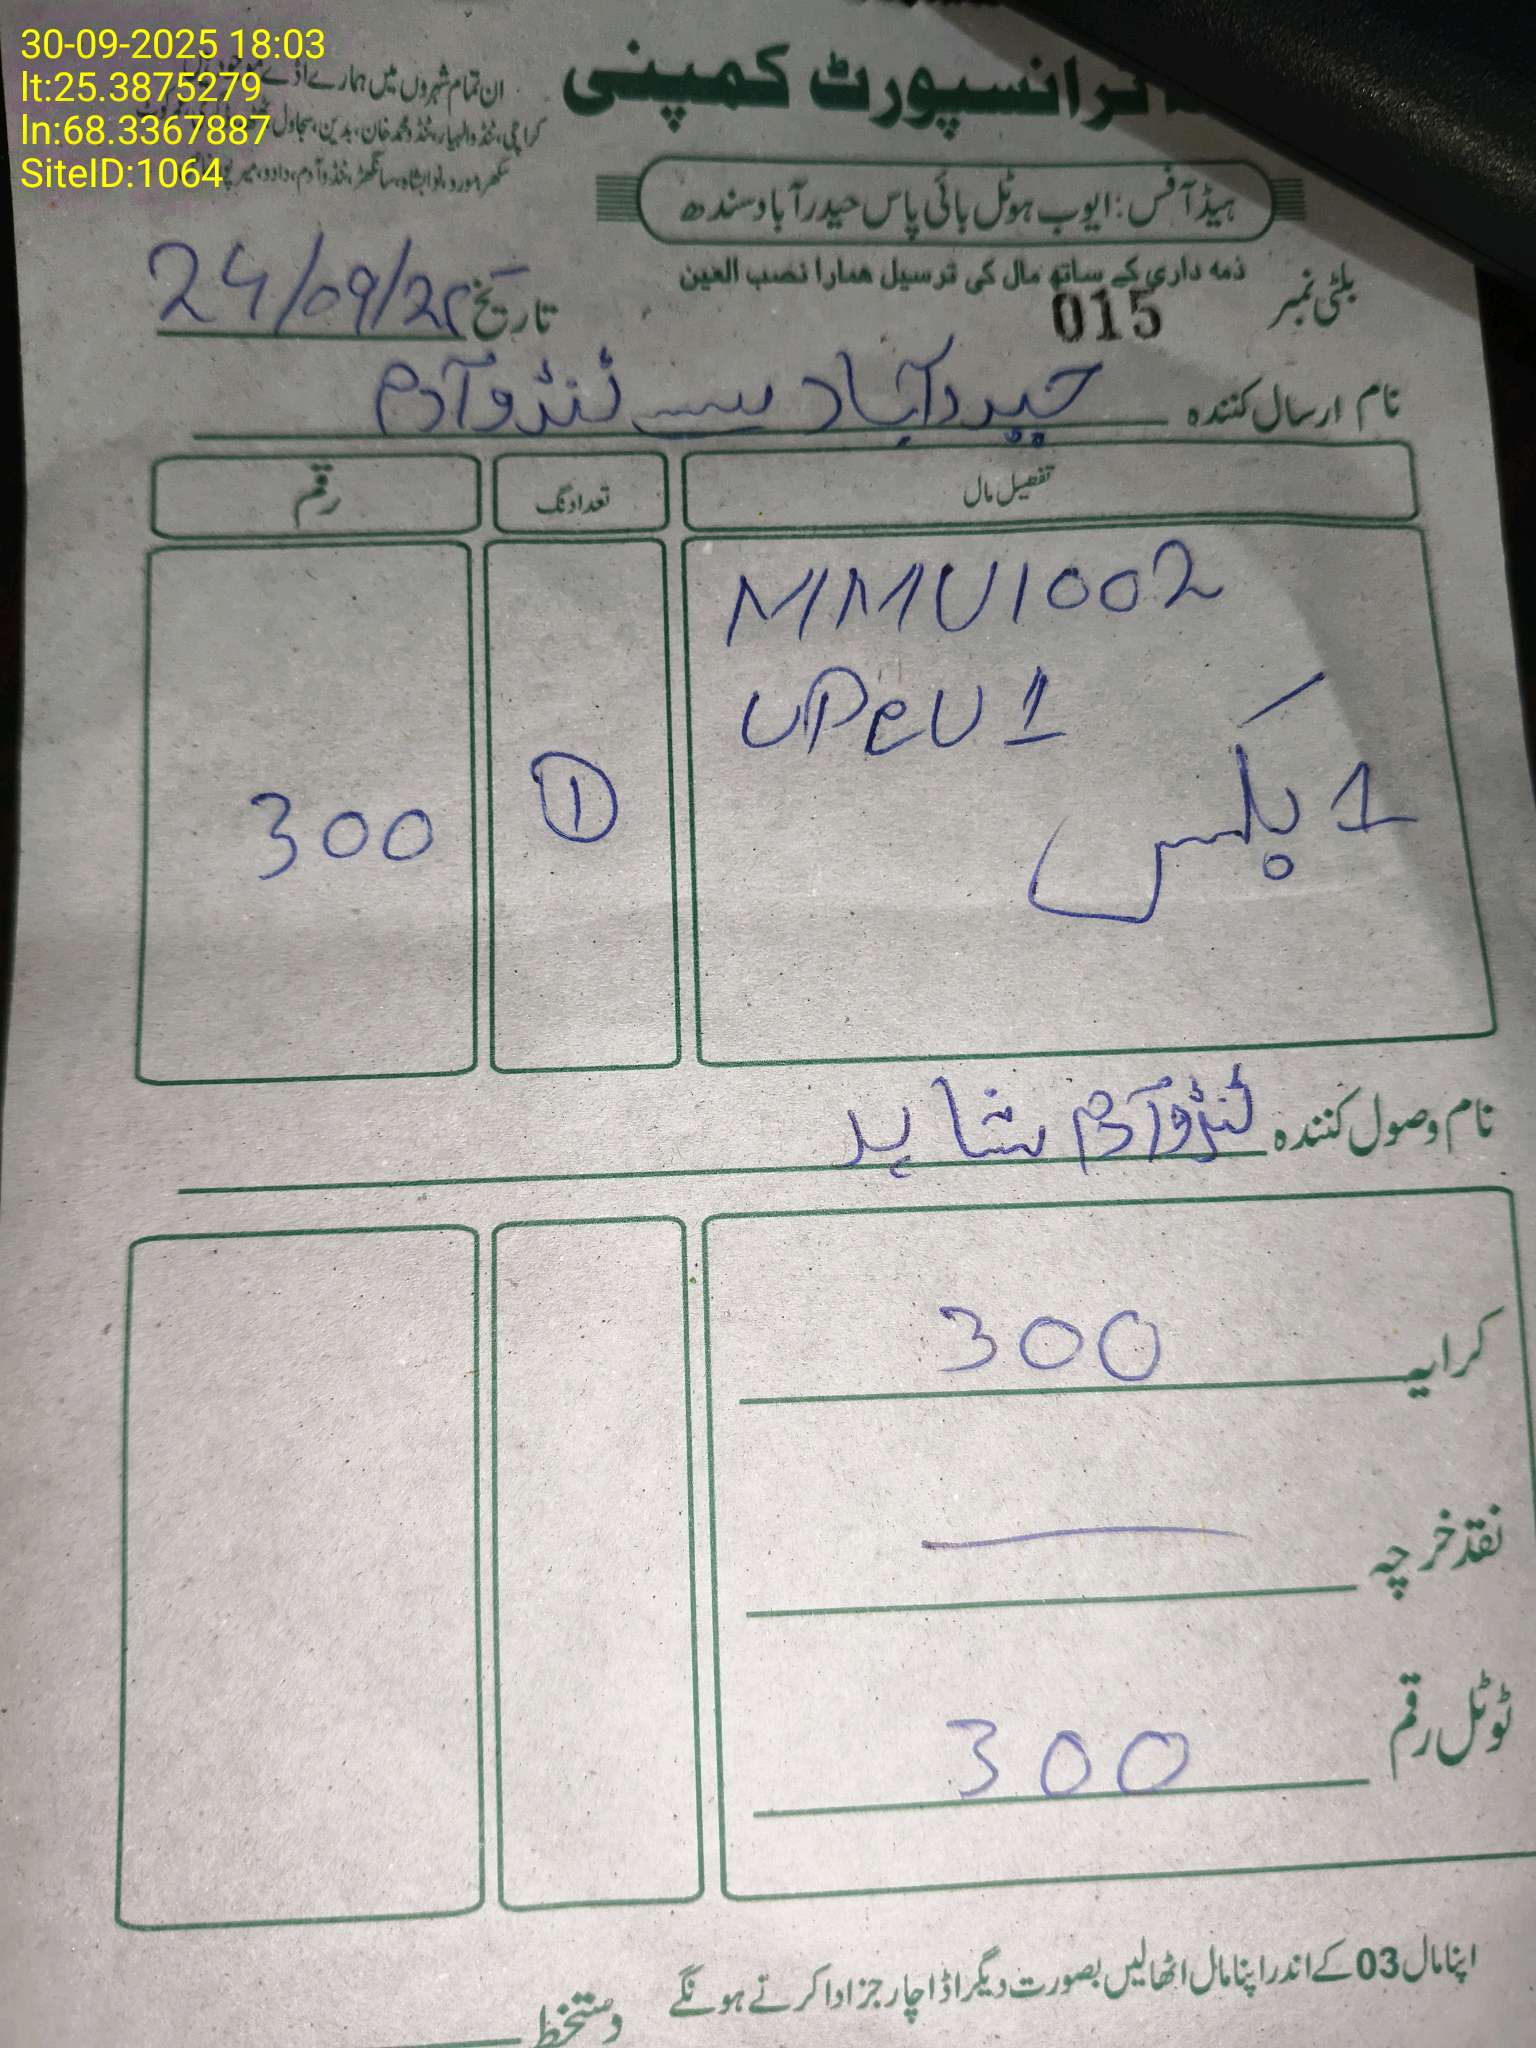 30-09-2025 18:03
lt:25.3875279
ln:68.3367887
SiteID:1064
ٹرانسپورٹ کمپنی
ان تمام شہروں میں ہمارے اڈے
کراچی، ٹنڈوالہیار، ٹنڈو محمد خان، بدین، سجاول
سکھر، مورو، نوابشاہ، سانگھڑ، ٹنڈوآدم، دادو، میرپور
ہیڈ آفس: ایوب ہوٹل بائی پاس حیدرآباد سندھ
ذمہ داری کے ساتھ مال کی ترسیل ہمارا نصب العین
بلٹی نمبر 015
تاریخ 24/09/25
نام ارسال کنندہ حیدرآباد سے ٹنڈوآدم
تفصیل مال تعداد نگ رقم
MMU1002
UPeU 1
1 بکس
1
300
نام وصول کنندہ ٹنڈوآدم شاہد
کرایہ 300
نقد خرچہ
ٹوٹل رقم 300
اپنا مال 03 کے اندر اپنا مال اٹھالیں بصورت دیگر اڈا چارجز ادا کرتے ہونگے
دستخط